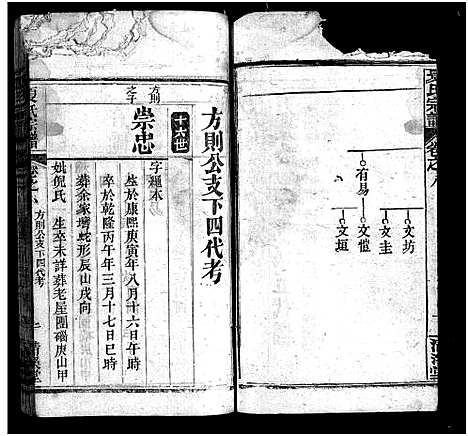 氏宗譜
卷之八
有易
文坊
文圭
文愷
文垣
方則公支下四代考
十六世
方則之子
崇忠
字繩本
生於康熙庚寅年八月十六日午時
卒於乾隆丙午年三月十七日巳時
葬余家壋蛇形辰山戌向
妣倪氏
生卒未詳葬老屋團碯庚山甲
氏宗譜
卷之八
方則公支下四代考
一